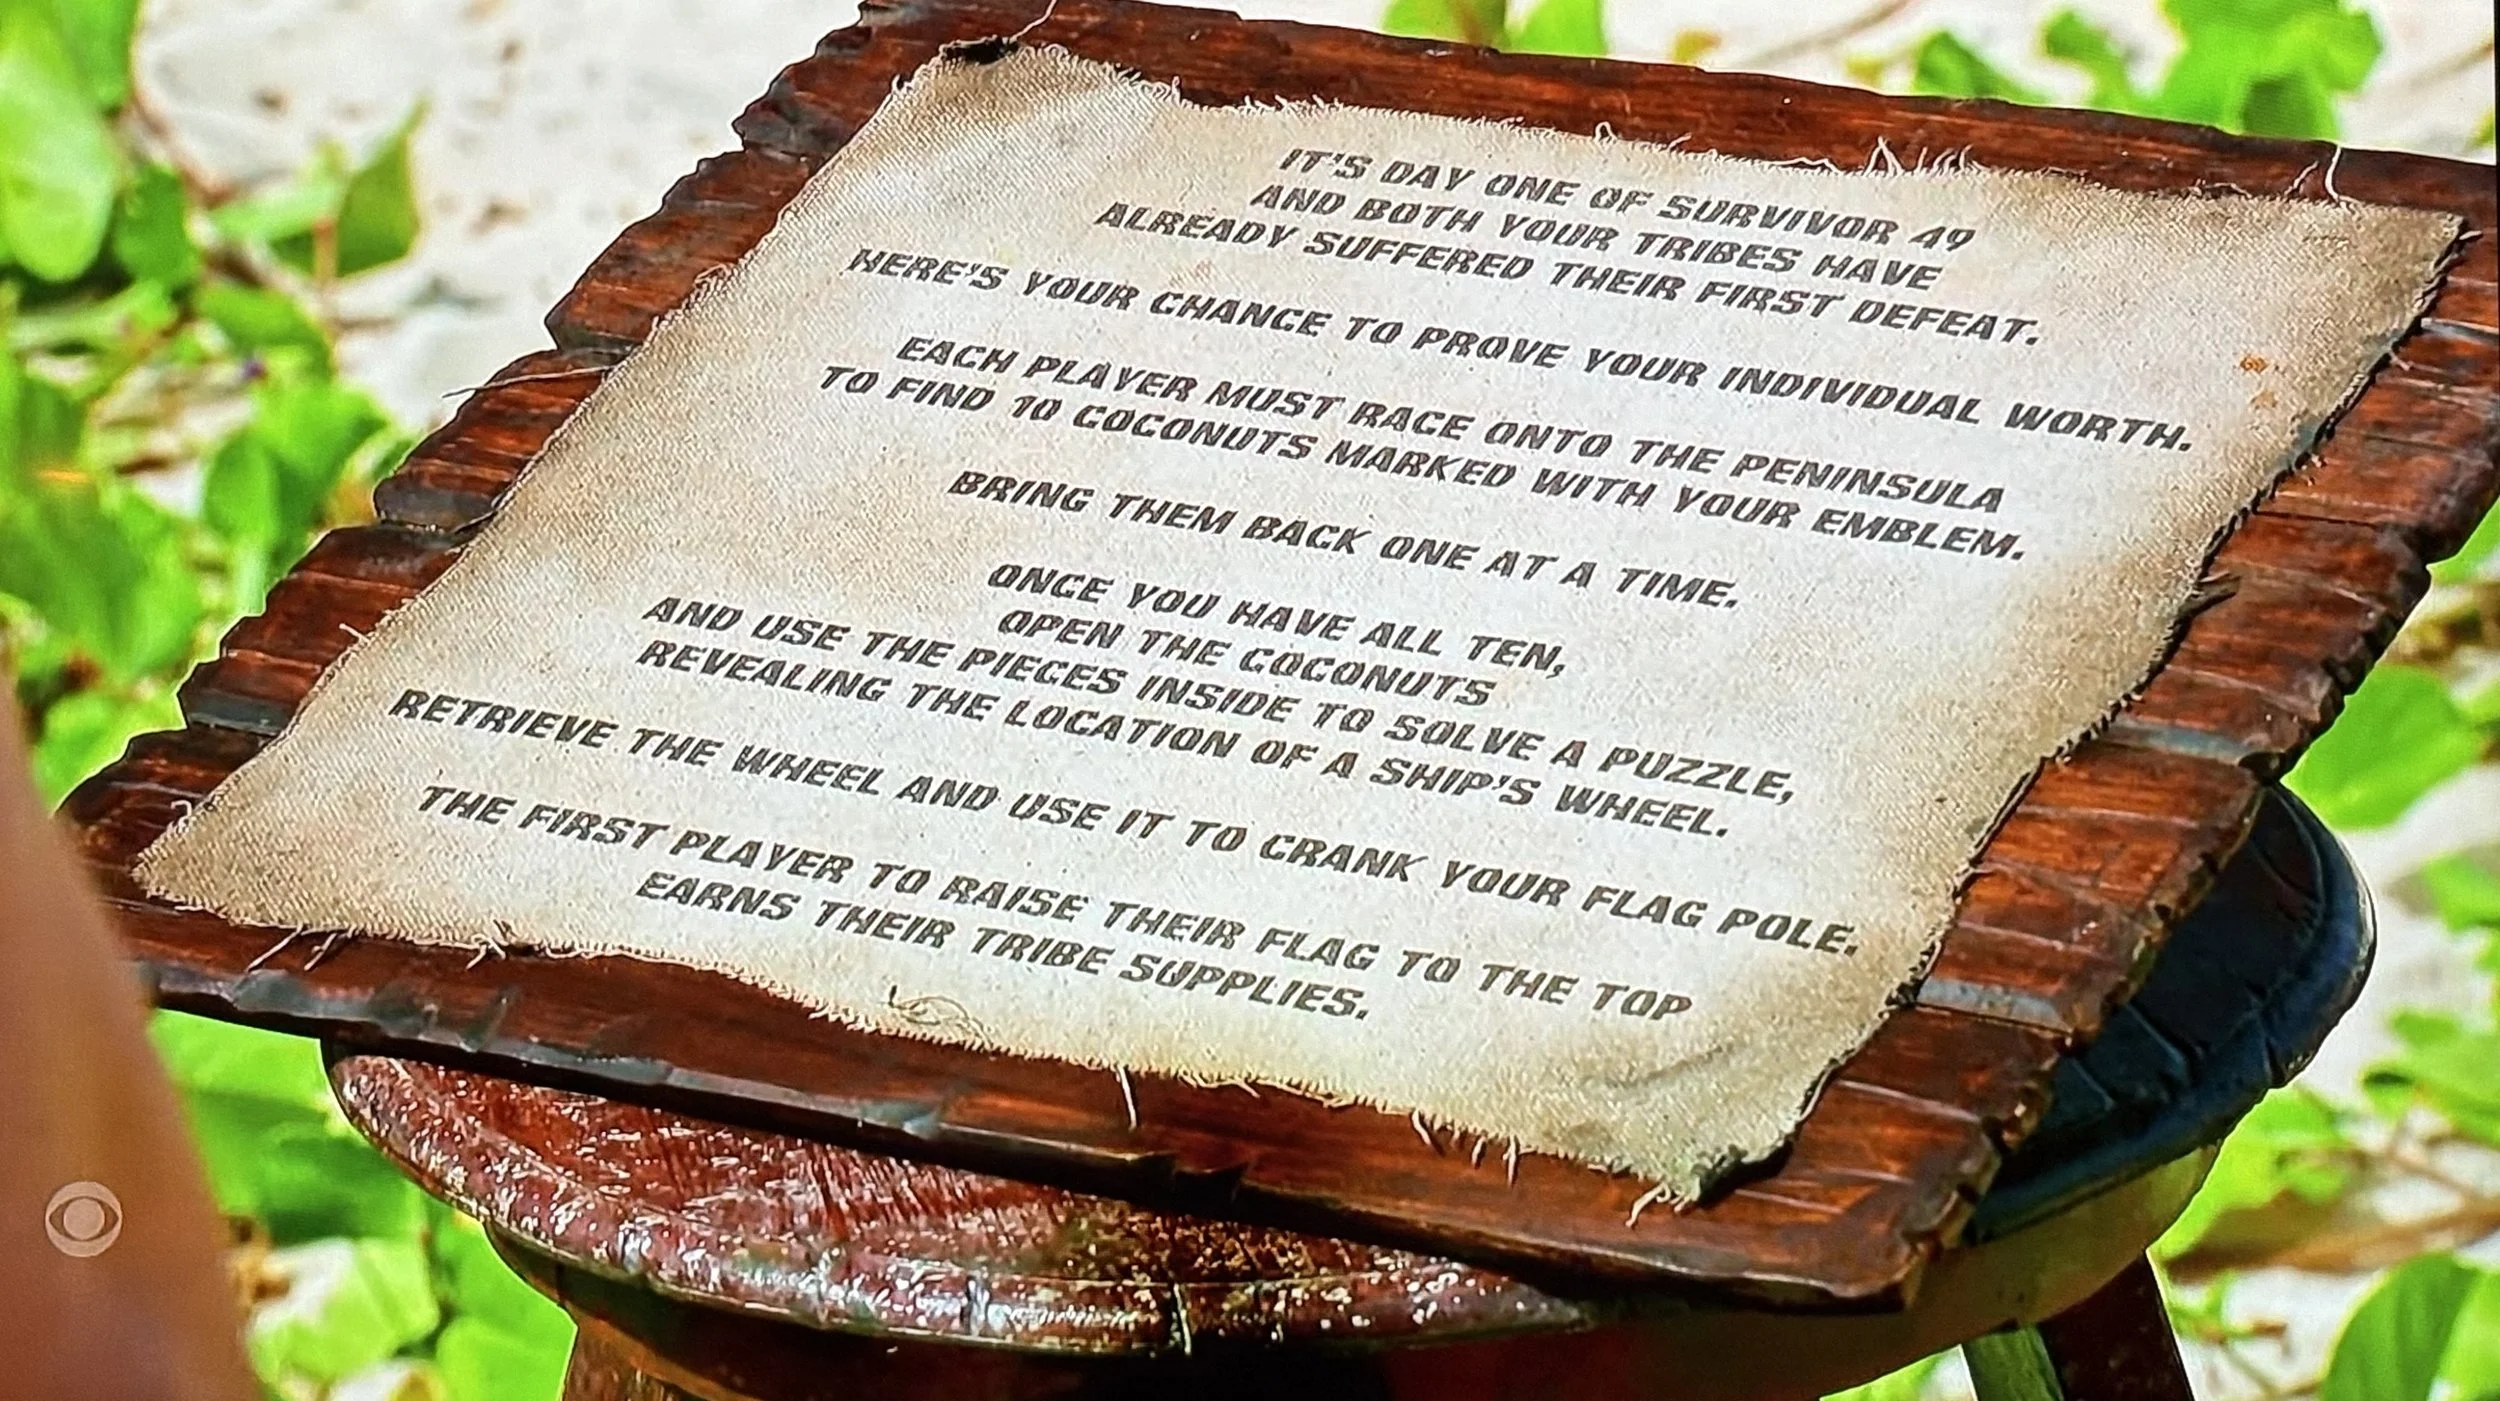 IT'S DAY ONE OF SURVIVOR 49
AND BOTH YOUR TRIBES HAVE
ALREADY SUFFERED THEIR FIRST DEFEAT.
HERE'S YOUR CHANCE TO PROVE YOUR INDIVIDUAL WORTH.
EACH PLAYER MUST RACE ONTO THE PENINSULA
TO FIND 10 COCONUTS MARKED WITH YOUR EMBLEM.
BRING THEM BACK ONE AT A TIME.
ONCE YOU HAVE ALL TEN,
OPEN THE COCONUTS
AND USE THE PIECES INSIDE TO SOLVE A PUZZLE,
REVEALING THE LOCATION OF A SHIP'S WHEEL.
RETRIEVE THE WHEEL AND USE IT TO CRANK YOUR FLAG POLE.
THE FIRST PLAYER TO RAISE THEIR FLAG TO THE TOP
EARNS THEIR TRIBE SUPPLIES.